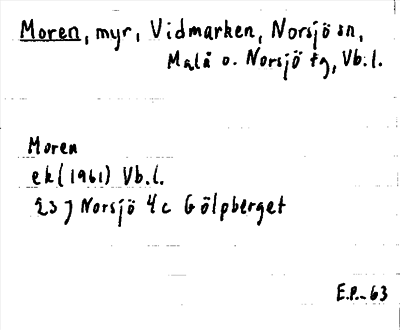 Moren, myr, Vidmarken, Norsjö sn,
Malå o. Norsjö tg, Vb.l.
Moren
ek (1961) Vb.l.
23 J Norsjö 4c Gölpberget
E.P.-63